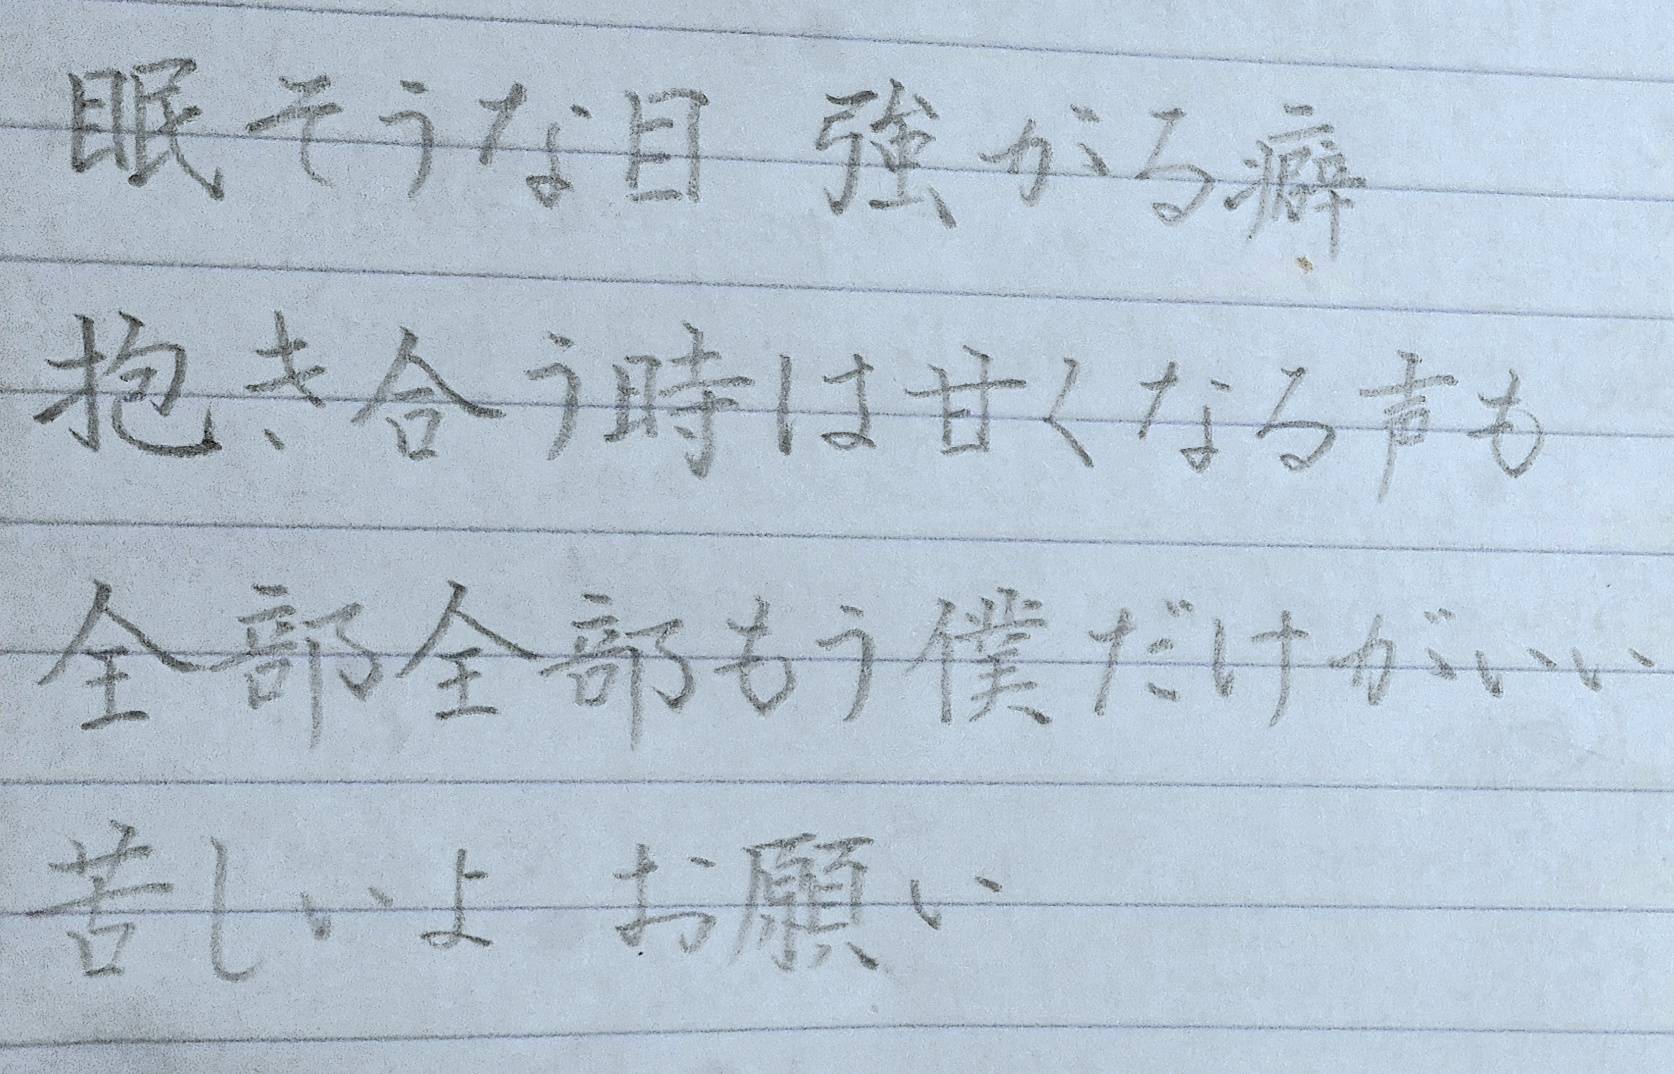 眠そうな目 強がる癖
抱き合う時は甘くなる声も
全部全部もう僕だけがいい
苦しいよ お願い